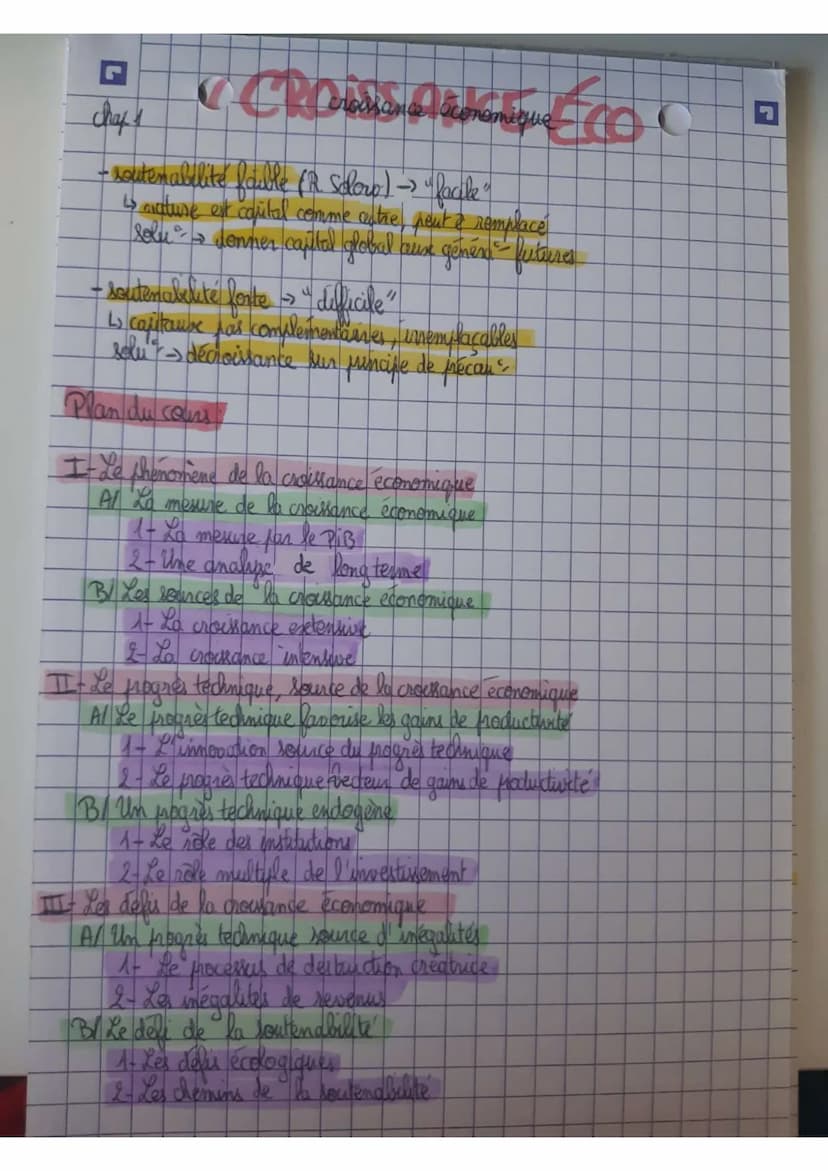 CROISSANCE ÉCO
croissance économique
chap 1
- soutenabilité faible (R. Solow) → "facile"
↳ nature est capital comme autre, peut ê remplacé
solu° → donner capital global aux généra° futures
- soutenabilité forte → "difficile"
↳ capitaux pas complémentaires, irremplaçables
solu° → décroissance sur principe de précau°
Plan du cours :
I- Le phénomène de la croissance économique
A/ La mesure de la croissance économique
1- La mesure par le PiB
2- Une analyse de long terme
B/ Les sources de la croissance économique
1- La croissance extensive
2- La croissance intensive
II- Le progrès technique, source de la croissance économique
A/ Le progrès technique favorise les gains de productivité
1- L'innovation source du progrès technique
2- Le progrès technique vecteur de gains de productivité
B/ Un progrès technique endogène
1- Le rôle des institutions
2- Le rôle multiple de l'investissement
III- Les défis de la croissance économique
A/ Un progrès technique source d'inégalités
1- Le processus de destruction créatrice
2- Les inégalités de revenus
B/ Le défi de la soutenabilité
1- Les défis écologiques
2- Les chemins de la soutenabilité